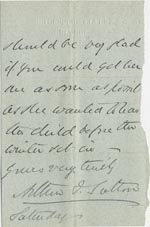 should be very glad
if you could get her
one as soon as possible
as she wanted to have
the child before the
winter set in —
yours very truly
Arthur J. Sutton
Saturday